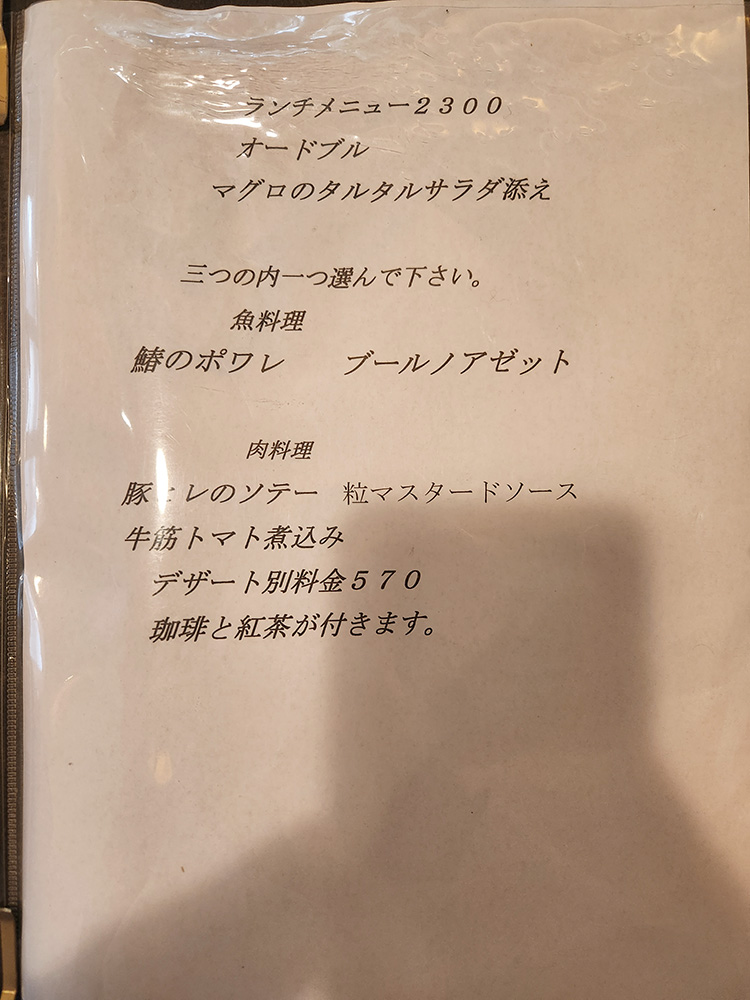 ランチメニュー２３００
オードブル
マグロのタルタルサラダ添え
三つの内一つ選んで下さい。
魚料理
鰆のポワレ　ブールノアゼット
肉料理
豚ヒレのソテー　粒マスタードソース
牛筋トマト煮込み
デザート別料金５７０
珈琲と紅茶が付きます。